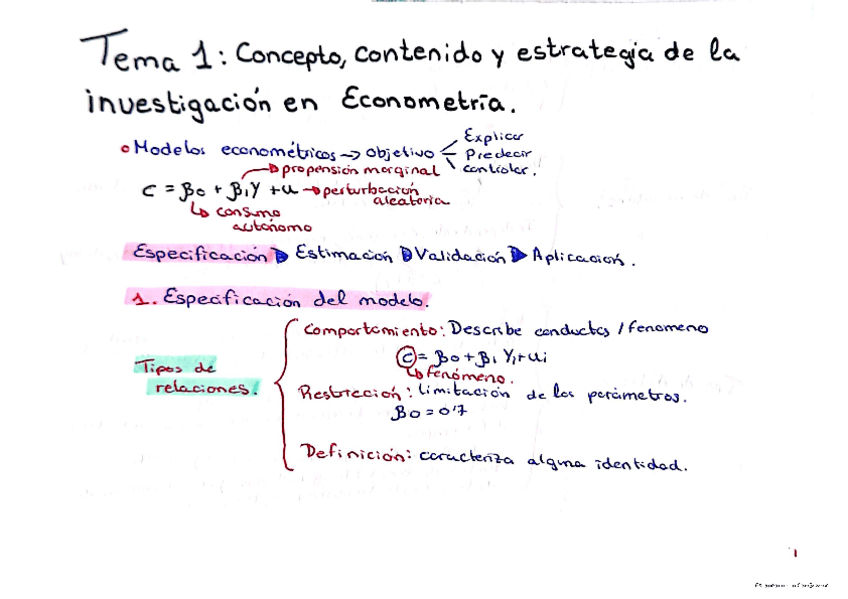 Tema 1: Concepto, contenido y estrategia de la
investigación en Econometría.
Modelos económétricos → Objetivo
Explicar
Predecir
controlar.
propensión marginal
C = β0 + β1Y + u → perturbación
aleatoria
consumo
autónomo
Especificación Estimación Validación Aplicación.
1. Especificación del modelo.
Tipos de
relaciones.
Comportamiento: Describe conductas / fenomeno
C = β0 + β1 Yi + ui
fenómeno.
Restricción: limitación de los parámetros.
β0 = 0'7
Definición: caracteriza alguna identidad.
1